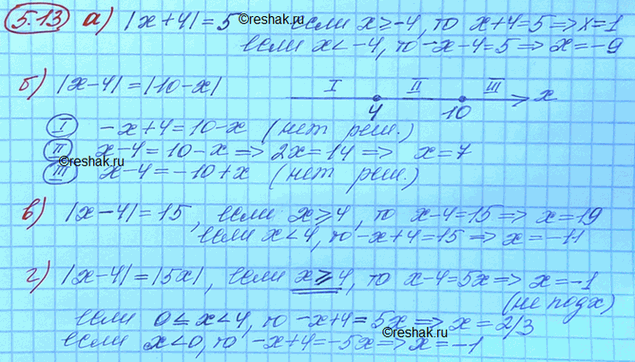 5.13 а) |x+4|=5 если x≥-4, то x+4=5 => x=1
©reshak.ru
если x<-4, то -x-4=5 => x=-9
б) |x-4|=|10-x| I II III x
4 10
I -x+4=10-x (нет реш.)
II x-4=10-x => 2x=14 => x=7
©reshak.ru
III x-4=-10+x (нет реш.)
в) |x-4|=15, если x≥4, то x-4=15 => x=19
если x<4, то -x+4=15 => x=-11
г) |x-4|=|5x|, если x≥4, то x-4=5x => x=-1
(не подх)
если 0≤x<4, то -x+4=5x => x=2/3
если x<0, то -x+4=-5x => x=-1
©reshak.ru